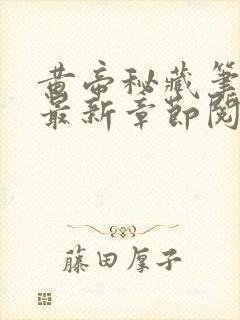 黄帝秘藏笔
最新章节阅
藤田厚子